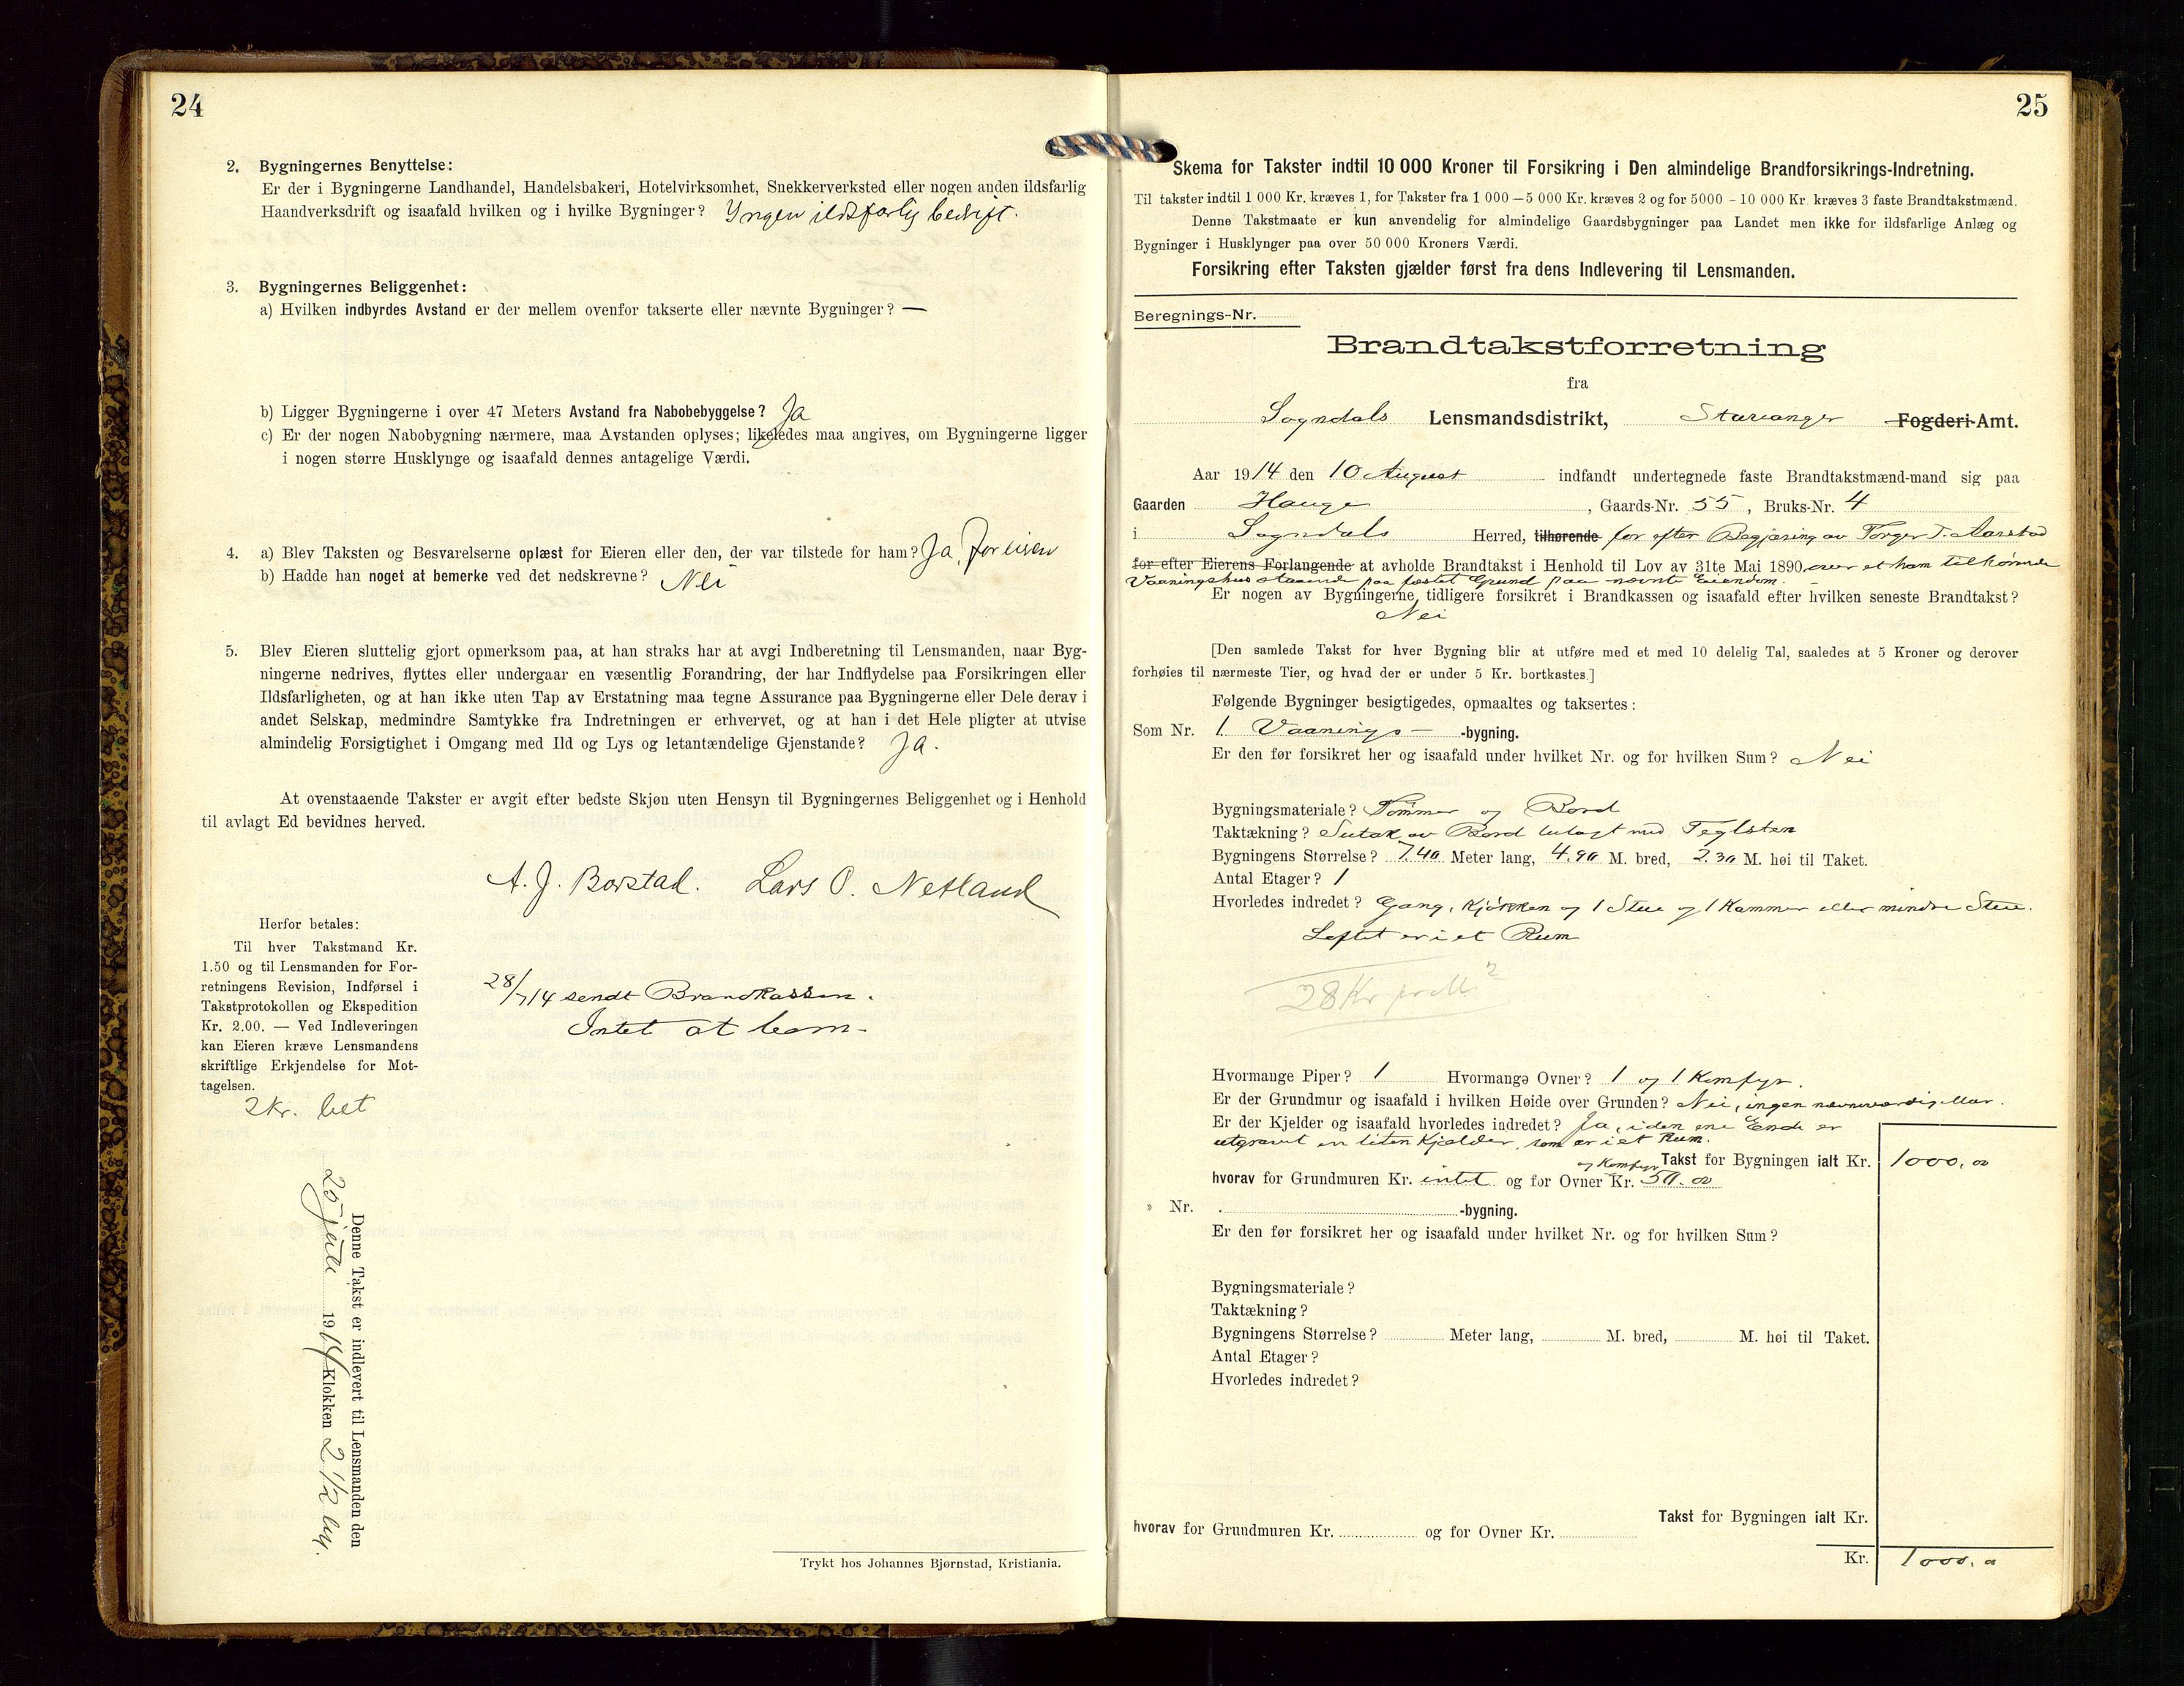 24
2. Bygningernes Benyttelse:
Er der i Bygningerne Landhandel, Handelsbakeri, Hotelvirksomhet, Snekkerverksted eller nogen anden ildsfarlig
Haandverksdrift og isaafald hvilken og i hvilke Bygninger? Yngen ildsfarlig bedrift.
3. Bygningernes Beliggenhet:
a) Hvilken indbyrdes Avstand er der mellem ovenfor takserte eller nævnte Bygninger? —
b) Ligger Bygningerne i over 47 Meters Avstand fra Nabobebyggelse? Ja
c) Er der nogen Nabobygning nærmere, maa Avstanden oplyses; likeledes maa angives, om Bygningerne ligger
i nogen større Husklynge og isaafald dennes antagelige Værdi.
4. a) Blev Taksten og Besvarelserne oplæst for Eieren eller den, der var tilstede for ham? Ja, for eieren
b) Hadde han noget at bemerke ved det nedskrevne? Nei
5. Blev Eieren sluttelig gjort opmerksom paa, at han straks har at avgi Indberetning til Lensmanden, naar Byg-
ningerne nedrives, flyttes eller undergaar en væsentlig Forandring, der har Indflydelse paa Forsikringen eller
Ildsfarligheten, og at han ikke uten Tap av Erstatning maa tegne Assurance paa Bygningerne eller Dele derav i
andet Selskap, medmindre Samtykke fra Indretningen er erhvervet, og at han i det Hele pligter at utvise
almindelig Forsigtighet i Omgang med Ild og Lys og letantændelige Gjenstande? Ja.
At ovenstaaende Takster er avgit efter bedste Skjøn uten Hensyn til Bygningernes Beliggenhet og i Henhold
til avlagt Ed bevidnes herved.
A. J. Barstad. Lars O. Netland
Herfor betales:
Til hver Takstmand Kr.
1.50 og til Lensmanden for For-
retningens Revision, Indførsel i
Takstprotokollen og Ekspedition
Kr. 2.00. — Ved Indleveringen
kan Eieren kræve Lensmandens
skriftlige Erkjendelse for Mot-
tagelsen.
2 kr. bet
28/7 14 sendt Brandkassen.
Intet at bem-
Denne Takst er indlevert til Lensmanden den
25 juli 1914 Klokken 2 1/2
Trykt hos Johannes Bjørnstad, Kristiania.
25
Skema for Takster indtil 10 000 Kroner til Forsikring i Den almindelige Brandforsikrings-Indretning.
Til takster indtil 1 000 Kr. kræves 1, for Takster fra 1 000 – 5 000 Kr. kræves 2 og for 5000 – 10 000 Kr. kræves 3 faste Brandtakstmænd.
Denne Takstmaate er kun anvendelig for almindelige Gaardsbygninger paa Landet men ikke for ildsfarlige Anlæg og
Bygninger i Husklynger paa over 50 000 Kroners Værdi.
Forsikring efter Taksten gjælder først fra dens Indlevering til Lensmanden.
Beregnings-Nr.
Brandtakstforretning
fra
Sogndals Lensmandsdistrikt, Stavanger Fogderi-Amt.
Aar 1914 den 10 August indfandt undertegnede faste Brandtakstmænd-mand sig paa
Gaarden Hauge, Gaards-Nr. 55, Bruks-Nr. 4
i Sogndals Herred, tilhørende for efter Begjæring av Torger T. Aarstad
for efter Eierens Forlangende at avholde Brandtakst i Henhold til Lov av 31te Mai 1890, over et ham tilhørende
Vaaningshus staaende paa fæstet Grund paa nævnte Eiendom.
Er nogen av Bygningerne tidligere forsikret i Brandkassen og isaafald efter hvilken seneste Brandtakst?
Nei
[Den samlede Takst for hver Bygning blir at utføre med et med 10 delelig Tal, saaledes at 5 Kroner og derover
forhøies til nærmeste Tier, og hvad der er under 5 Kr. bortkastes.]
Følgende Bygninger besigtigedes, opmaaltes og taksertes:
Som Nr. 1. Vaanings- -bygning.
Er den før forsikret her og isaafald under hvilket Nr. og for hvilken Sum? Nei
Bygningsmateriale? Tømmer og Bord
Taktækning? Sutak av Bord belagt med Teglsten
Bygningens Størrelse? 7.40 Meter lang, 4.90 M. bred, 2.30 M. høi til Taket.
Antal Etager? 1
Hvorledes indredet? Gang, Kjøkken og 1 Stue og 1 Kammer eller mindre Stue.
Loftet er i et Rum
28 Kr pr M²
Hvormange Piper? 1 Hvormange Ovner? 1 og 1 Komfyr.
Er der Grundmur og isaafald i hvilken Høide over Grunden? Nei, ingen nævneværdig Mur.
Er der Kjelder og isaafald hvorledes indredet? Ja, i den ene Ende er
utgravet en liten Kjælder, som er i et Rum.
Takst for Bygningen ialt Kr. 1000.00
og Komfyr
hvorav for Grundmuren Kr. intet og for Ovner Kr. 50.00
» Nr. -bygning.
Er den før forsikret her og isaafald under hvilket Nr. og for hvilken Sum?
Bygningsmateriale?
Taktækning?
Bygningens Størrelse? Meter lang, M. bred, M. høi til Taket.
Antal Etager?
Hvorledes indredet?
Takst for Bygningen ialt Kr.
hvorav for Grundmuren Kr. og for Ovner Kr.
Kr. 1000.00